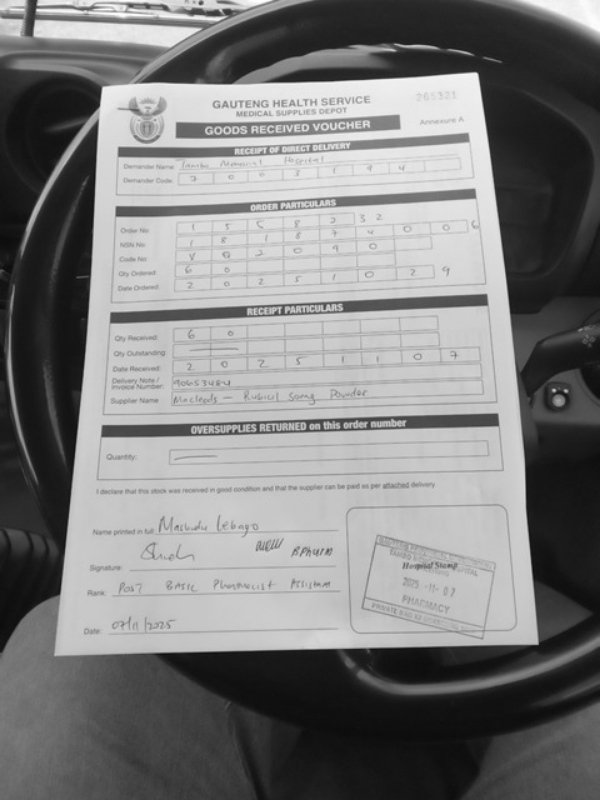 GAUTENG HEALTH SERVICE
MEDICAL SUPPLIES DEPOT
265321
GOODS RECEIVED VOUCHER
Annexure A
RECEIPT OF DIRECT DELIVERY
Demander Name: Tambo Memorial Hospital
Demander Code: 7 0 0 3 1 9 4
ORDER PARTICULARS
Order No: 1 5 5 8 2 3 2
NSN No: 1 8 1 8 7 4 0 0 6
Code No: V 0 2 0 9 0
Qty Ordered: 6 0
Date Ordered: 2 0 2 5 1 0 2 9
RECEIPT PARTICULARS
Qty Received: 6 0
Qty Outstanding
Date Received: 2 0 2 5 1 1 0 7
Delivery Note / Invoice Number: 90653484
Supplier Name: Macleods - 50mg Powder
OVERSUPPLIES RETURNED on this order number
Quantity:
I declare that this stock was received in good condition and that the supplier can be paid as per attached delivery
Name printed in full: Lebago
Signature: BPharm
Rank: Post Basic Pharmacist Assistant
Date: 07/11/2025
Hospital Stamp
TAMBO MEMORIAL HOSPITAL
2025 -11- 07
PHARMACY